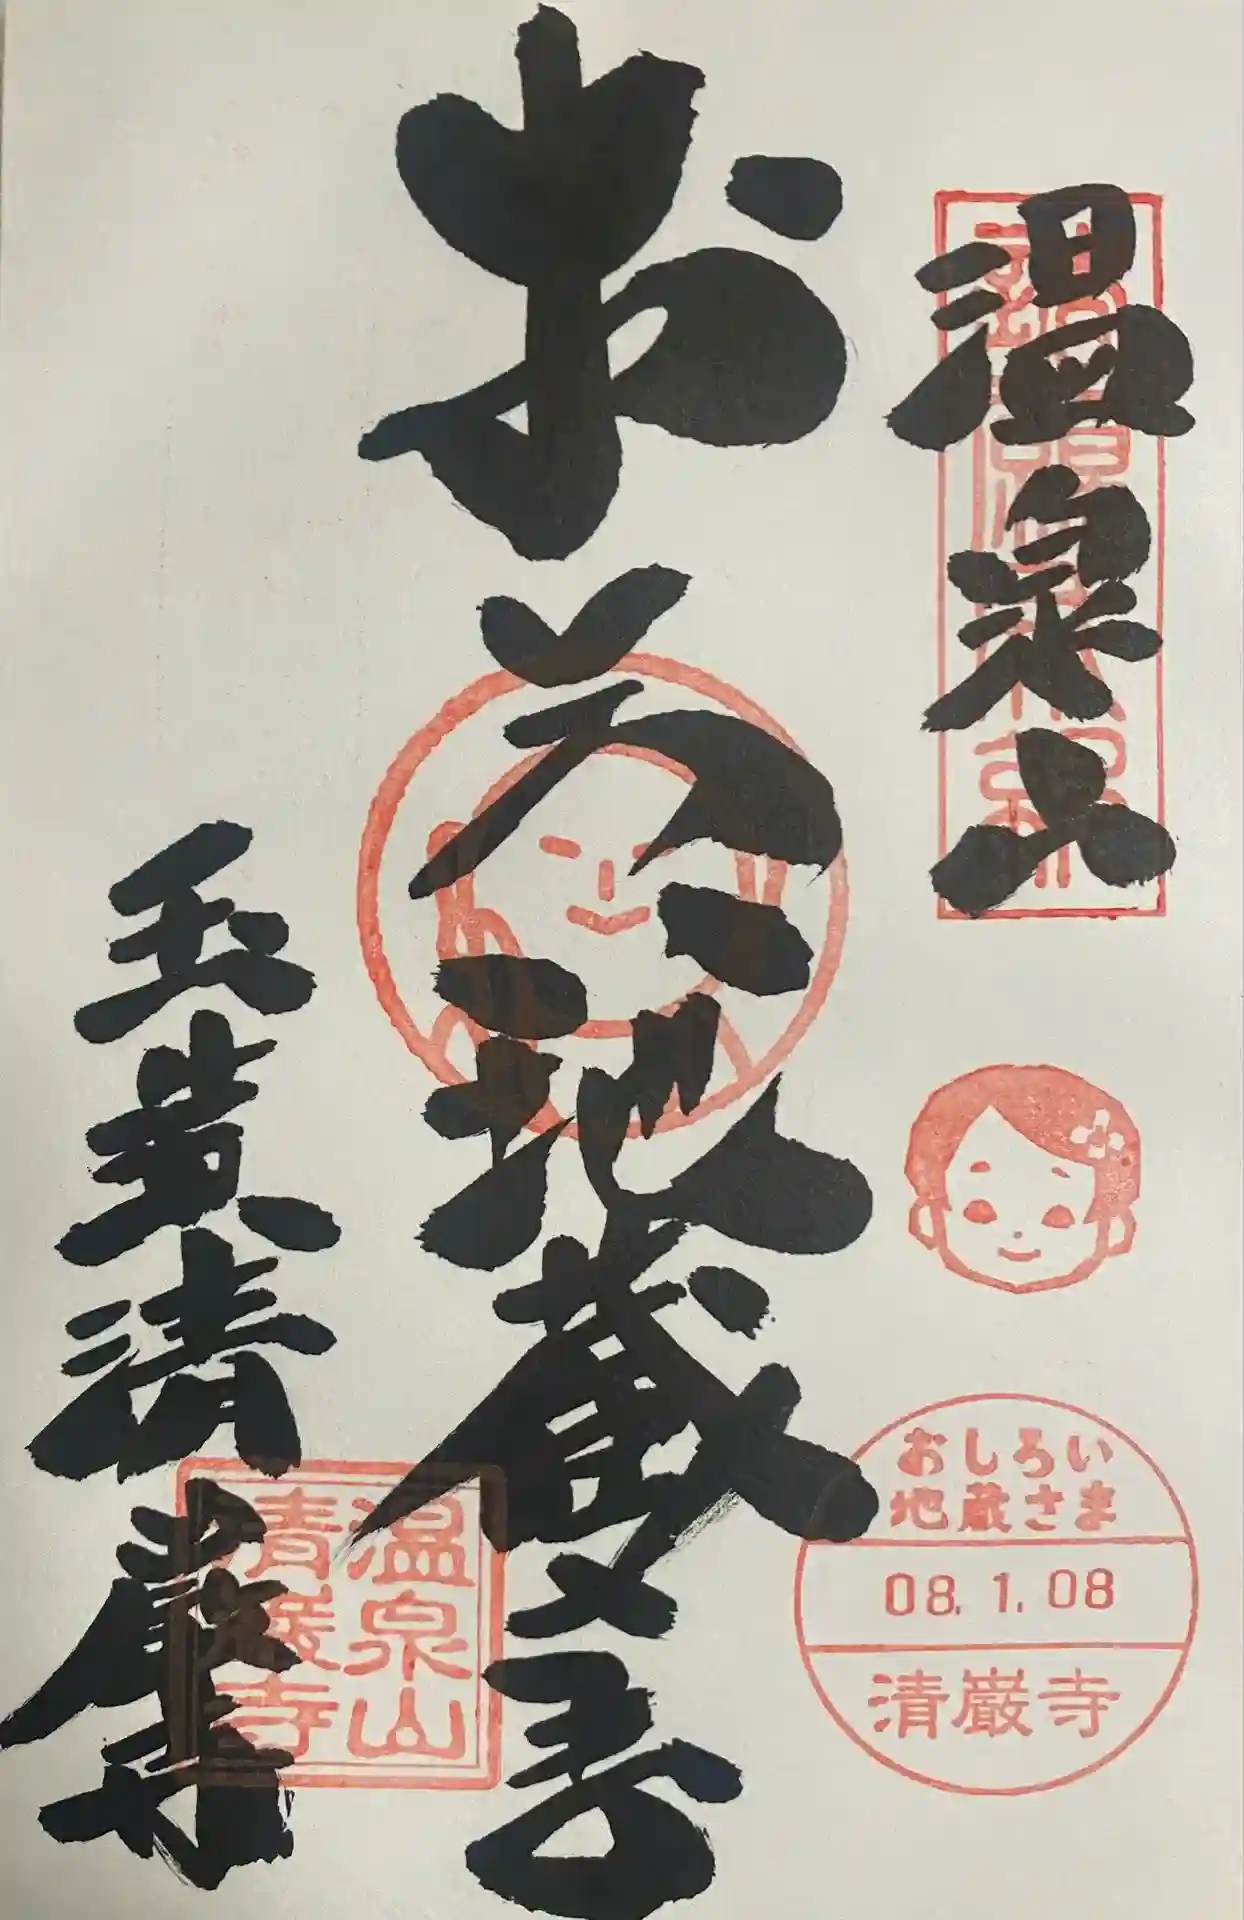 温泉山
おしろい
地蔵さま
08.1.08
清巌寺
お
地蔵
玉造清巌寺
温泉山
清巌寺